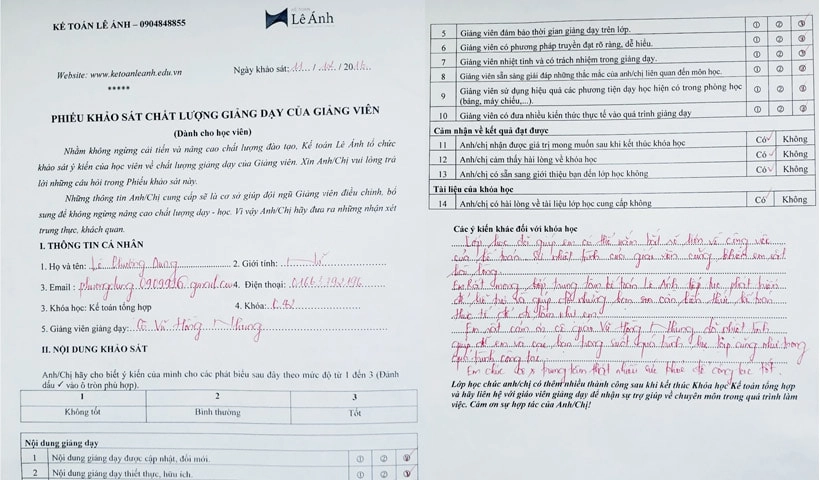 KẾ TOÁN LÊ ÁNH – 0904848855
KẾ TOÁN
Lê Ánh
Website: www.ketoanleanh.edu.vn
Ngày khảo sát:
*****
PHIẾU KHẢO SÁT CHẤT LƯỢNG GIẢNG DẠY CỦA GIẢNG VIÊN
(Dành cho học viên)
Nhằm không ngừng cải tiến và nâng cao chất lượng đào tạo, Kế toán Lê Ánh tổ chức
khảo sát ý kiến của học viên về chất lượng giảng dạy của Giảng viên. Xin Anh/Chị vui lòng trả
lời những câu hỏi trong Phiếu khảo sát này.
Những thông tin Anh/Chị cung cấp sẽ là cơ sở giúp đội ngũ Giảng viên điều chỉnh, bổ
sung để không ngừng nâng cao chất lượng dạy - học. Vì vậy Anh/Chị hãy đưa ra những nhận xét
trung thực, khách quan.
I. THÔNG TIN CÁ NHÂN
1. Họ và tên: Lê Phương Dung 2. Giới tính: Nữ
3. Email: 4. Điện thoại:
3. Khóa học: Kế toán tổng hợp 4. Khóa:
5. Giảng viên giảng dạy: Cô Vũ Hồng Nhung
II. NỘI DUNG KHẢO SÁT
Anh/Chị hãy cho biết ý kiến của mình cho các phát biểu sau đây theo mức độ từ 1 đến 3 (Đánh
dấu ✓ vào ô tròn phù hợp).
1 2 3
Không tốt Bình thường Tốt
Nội dung giảng dạy
1 Nội dung giảng dạy được cập nhật, đổi mới. ① ② ③
2 Nội dung giảng dạy thiết thực, hữu ích. ① ② ③
5 Giảng viên đảm bảo thời gian giảng dạy trên lớp. ① ② ③
6 Giảng viên có phương pháp truyền đạt rõ ràng, dễ hiểu. ① ② ③
7 Giảng viên nhiệt tình và có trách nhiệm trong giảng dạy. ① ② ③
8 Giảng viên sẵn sàng giải đáp những thắc mắc của anh/chị liên quan đến môn học. ① ② ③
9 Giảng viên sử dụng hiệu quả các phương tiện dạy học hiện có trong phòng học
(bảng, máy chiếu,...). ① ② ③
10 Giảng viên có đưa nhiều kiến thức thực tế vào quá trình giảng dạy ① ② ③
Cảm nhận về kết quả đạt được
11 Anh/chị nhận được giá trị mong muốn sau khi kết thúc khóa học Có ✓ Không
12 Anh/chị cảm thấy hài lòng về khóa học Có ✓ Không
13 Anh/chị có sẵn sàng giới thiệu bạn đến lớp học không Có ✓ Không
Tài liệu của khóa học
14 Anh/chị có hài lòng về tài liệu lớp học cung cấp không Có ✓ Không
Các ý kiến khác đối với khóa học
Lớp học đã giúp em có thể nắm bắt về công việc
của kế toán. Sự nhiệt tình của giáo viên cũng khiến em rất
hài lòng.
Em rất mong trung tâm kế toán Lê Ánh tiếp tục phát triển
để và giúp đỡ những bạn
thực tế như em.
Em rất cảm ơn cô giáo Vũ Hồng Nhung đã nhiệt tình
giúp đỡ em và các bạn trong suốt quá trình học lớp cũng như trong
quá trình công tác.
Em chúc thật nhiều sức khỏe để công tác tốt.
Lớp học chúc anh/chị có thêm nhiều thành công sau khi kết thúc Khóa học Kế toán tổng hợp
và hãy liên hệ với giáo viên giảng dạy để nhận sự trợ giúp về chuyên môn trong quá trình làm
việc. Cảm ơn sự hợp tác của Anh/Chị!